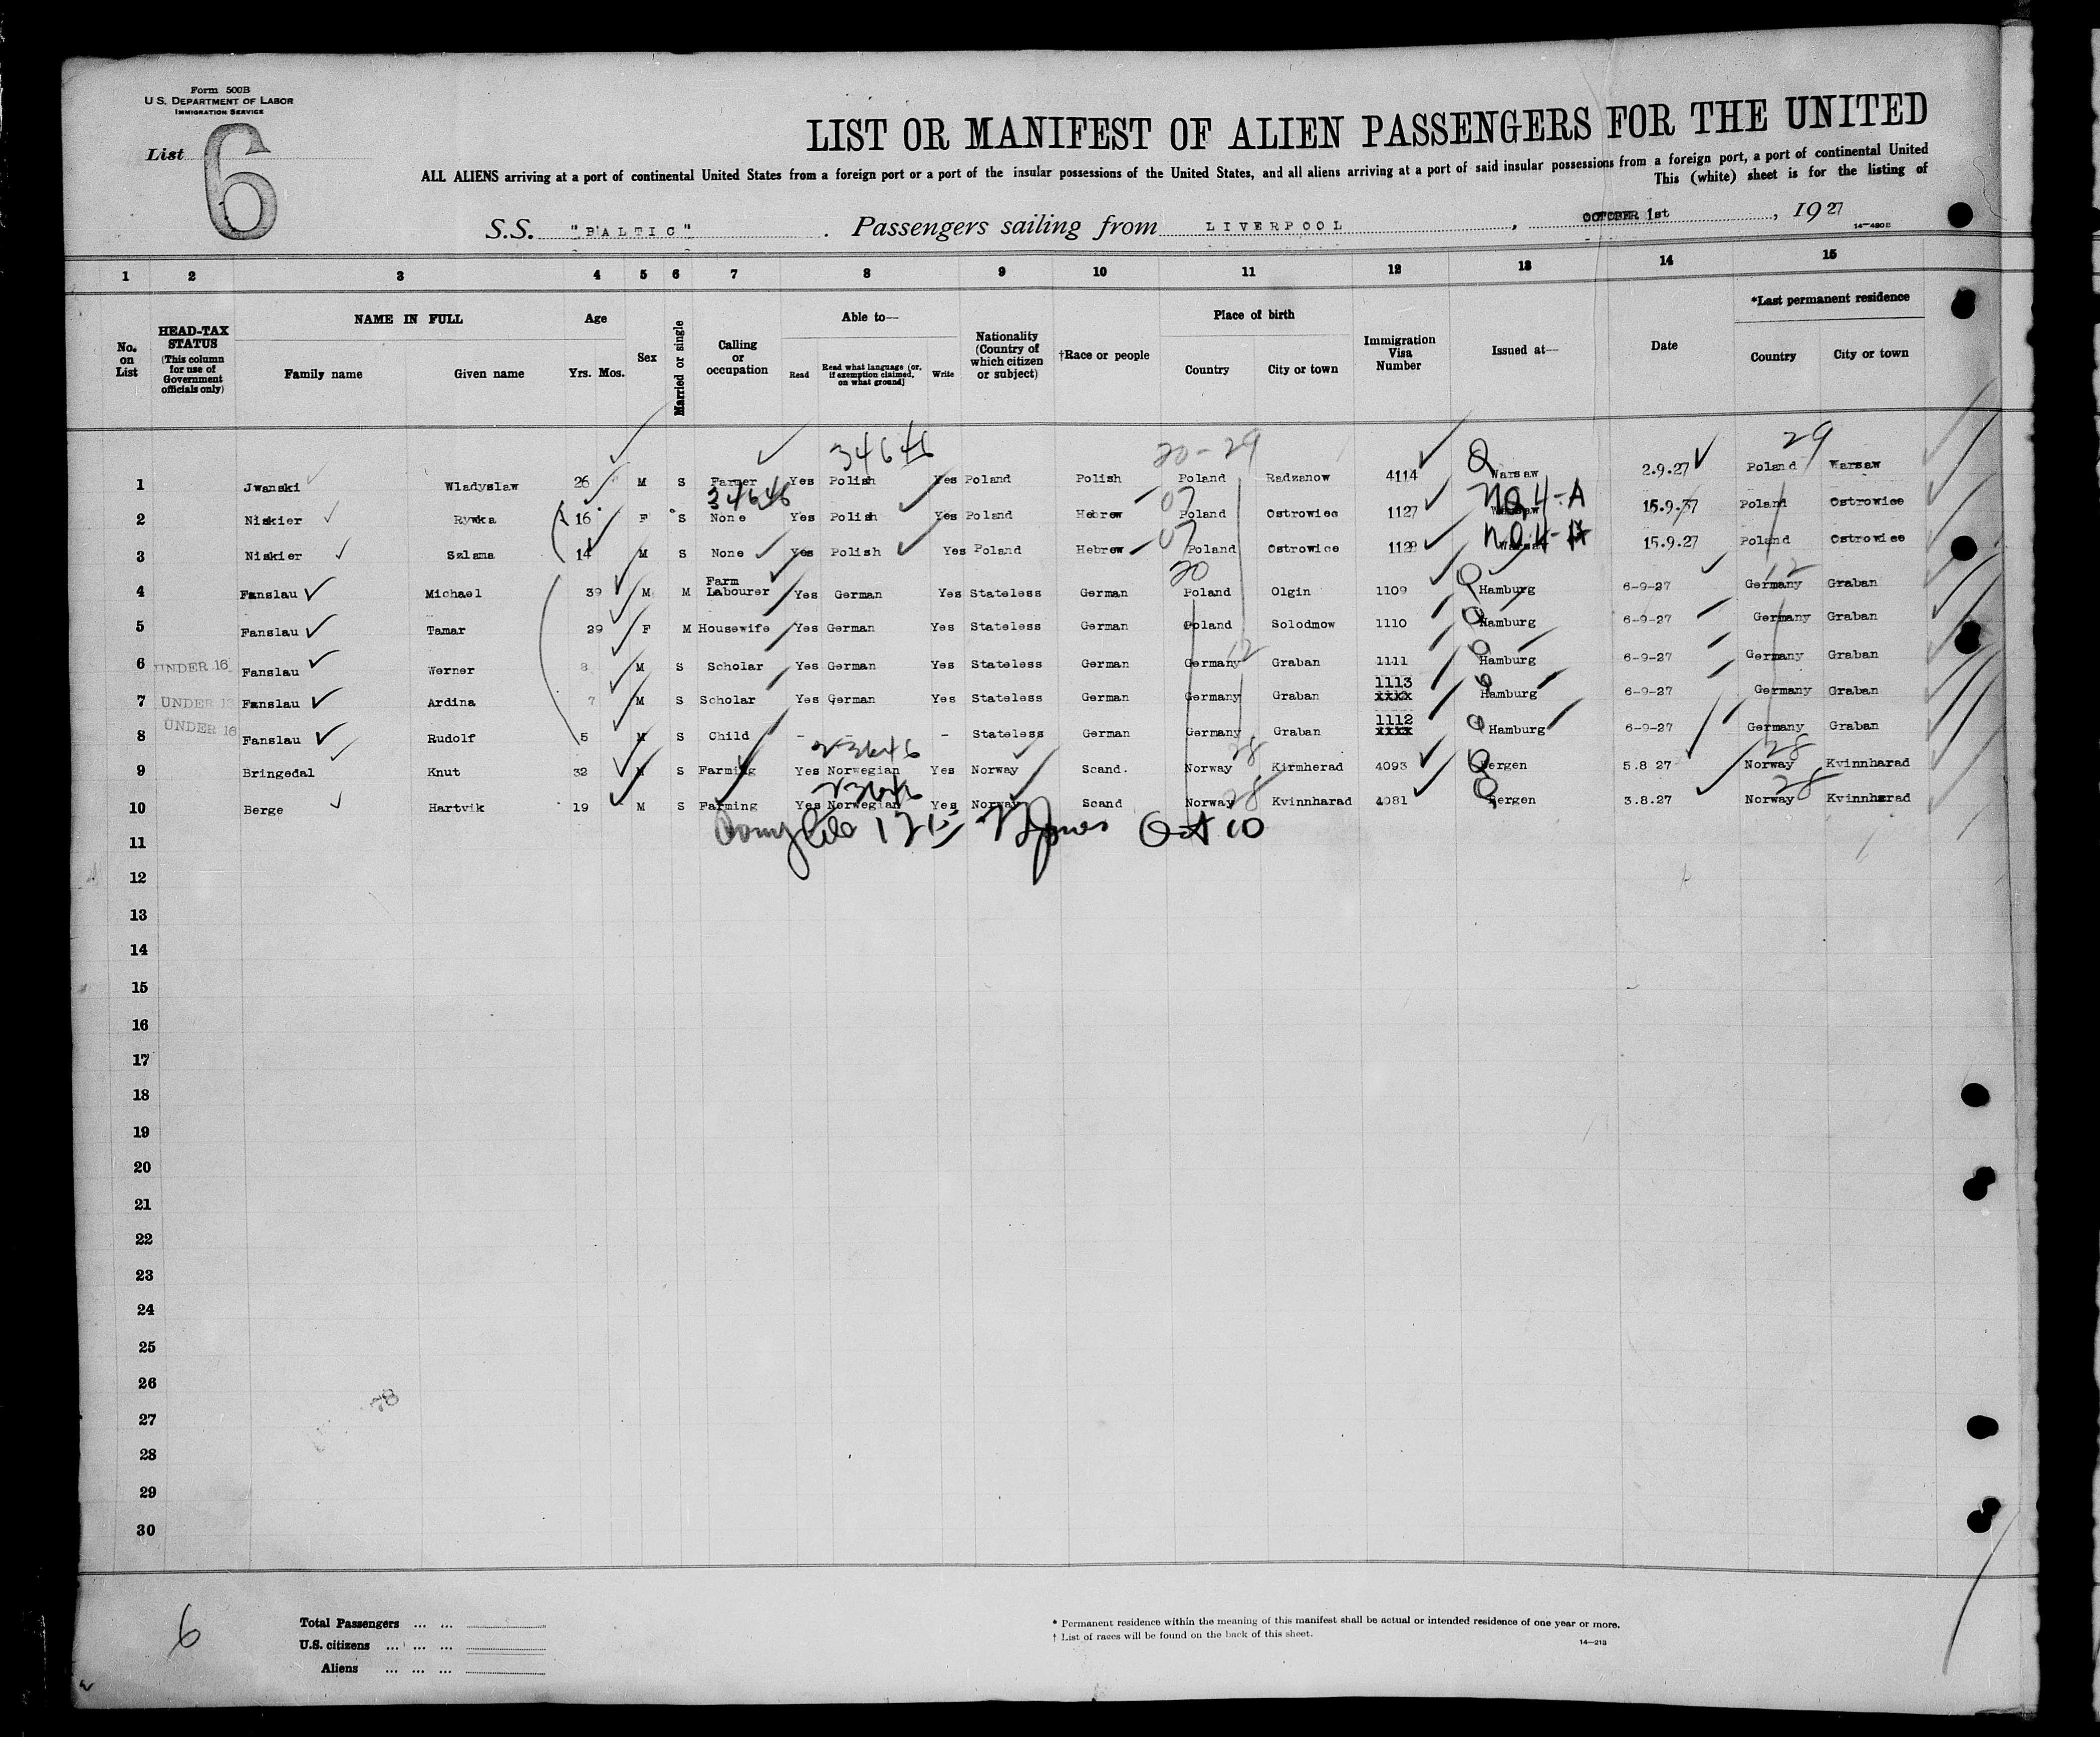 Form 500B
U.S. DEPARTMENT OF LABOR
IMMIGRATION SERVICE
List 6
LIST OR MANIFEST OF ALIEN PASSENGERS FOR THE UNITED
ALL ALIENS arriving at a port of continental United States from a foreign port or a port of the insular possessions of the United States, and all aliens arriving at a port of said insular possessions from a foreign port, a port of continental United
This (white) sheet is for the listing of
S.S. "BALTIC" . Passengers sailing from LIVERPOOL , OCTOBER 1st , 1927
14-480B
1 2 3 4 5 6 7 8 9 10 11 12 13 14 15
No. on List
HEAD-TAX STATUS (This column for use of Government officials only)
NAME IN FULL
Family name Given name
Age
Yrs. Mos.
Sex
Married or single
Calling or occupation
Able to—
Read Read what language (or, if exemption claimed, on what ground) Write
Nationality (Country of which citizen or subject)
†Race or people
Place of birth
Country City or town
Immigration Visa Number
Issued at—
Date
*Last permanent residence
Country City or town
34646 20-29 29
1 Jwanski Wladyslaw 26 M S Farmer Yes Polish Yes Poland Polish Poland Radzanow 4114 Q Warsaw 2.9.27 Poland Warsaw
34646 07 NQ4-A
2 Niskier Rywka 16 F S None Yes Polish Yes Poland Hebrew Poland Ostrowiec 1127 Warsaw 15.9.27 Poland Ostrowiec
07 NQ4-A
3 Niskier Szlama 14 M S None Yes Polish Yes Poland Hebrew Poland Ostrowiec 1128 Warsaw 15.9.27 Poland Ostrowiec
20 12
4 Fanslau Michael 39 M M Farm Labourer Yes German Yes Stateless German Poland Olgin 1109 Q Hamburg 6-9-27 Germany Graban
5 Fanslau Tamar 29 F M Housewife Yes German Yes Stateless German Poland Solodmow 1110 Q Hamburg 6-9-27 Germany Graban
12
6 UNDER 16 Fanslau Werner 8 M S Scholar Yes German Yes Stateless German Germany Graban 1111 Q Hamburg 6-9-27 Germany Graban
7 UNDER 16 Fanslau Ardina 7 M S Scholar Yes German Yes Stateless German Germany Graban 1113 xxxx Q Hamburg 6-9-27 Germany Graban
8 UNDER 16 Fanslau Rudolf 5 M S Child - - Stateless German Germany Graban 1112 xxxx Q Hamburg 6-9-27 Germany Graban
23646 28 28
9 Bringedal Knut 32 M S Farming Yes Norwegian Yes Norway Scand. Norway Kirmherad 4093 Q Bergen 5.8 27 Norway Kvinnharad
23646 28 28
10 Berge Hartvik 19 M S Farming Yes Norwegian Yes Norway Scand Norway Kvinnharad 4081 Q Bergen 3.8.27 Norway Kvinnharad
Oct 10
11
12
13
14
15
16
17
18
19
20
21
22
23
24
25
26
27
28
29
30
6
Total Passengers ... ...
U.S. citizens ... ... ...
Aliens ... ... ...
* Permanent residence within the meaning of this manifest shall be actual or intended residence of one year or more.
† List of races will be found on the back of this sheet.
14-213